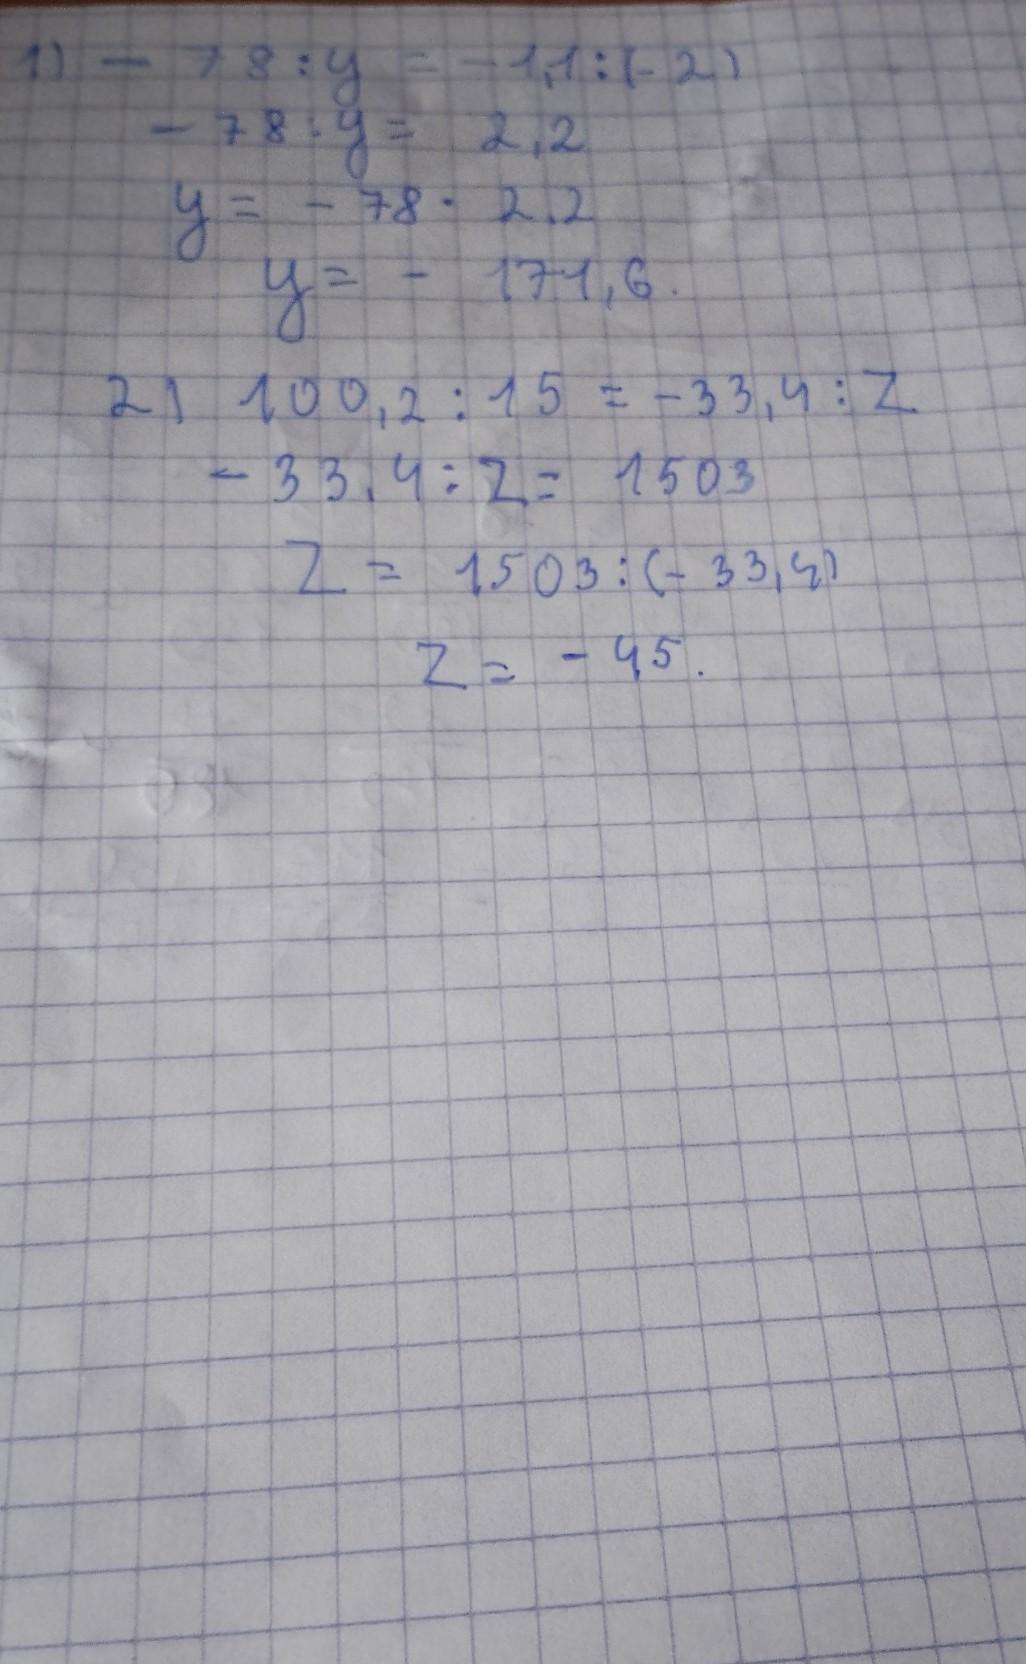 1) - 78 : y = -1,1 : (-2)
- 78 : y = 2,2
y = - 78 · 2,2
y = - 171,6.
2) 100,2 : 15 = -33,4 : Z
- 33,4 : Z = 1503
Z = 1503 : (- 33,4)
Z = - 45.